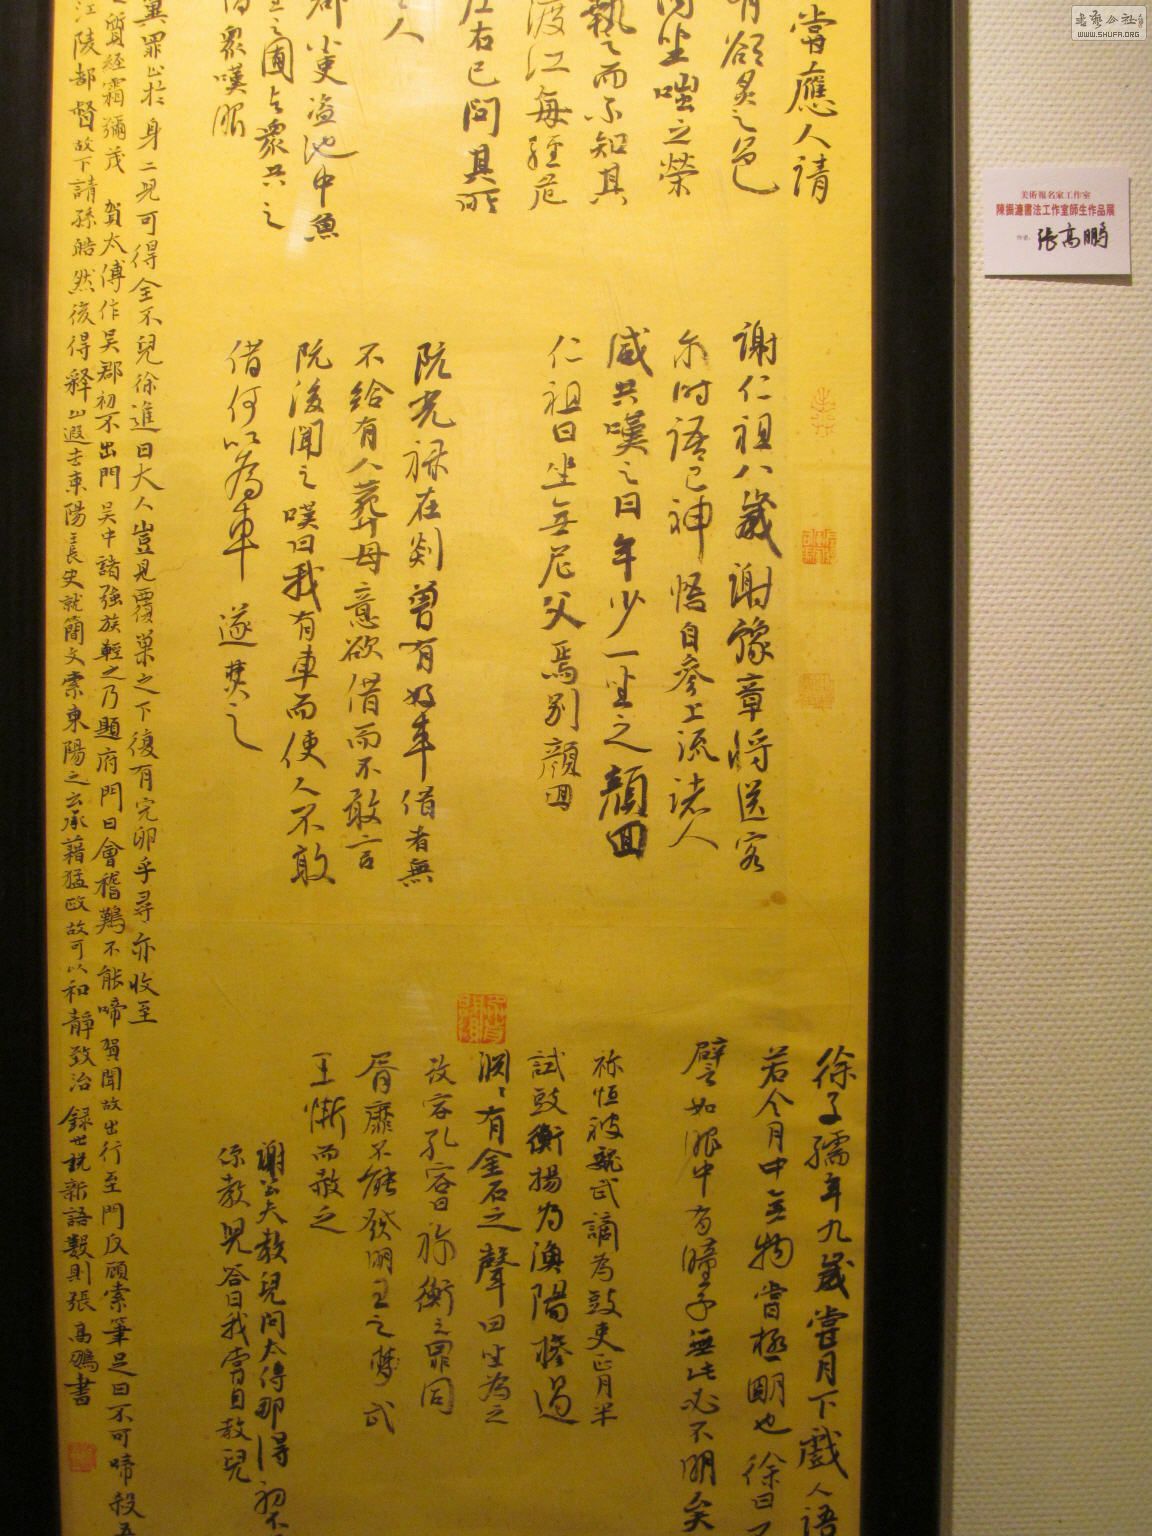 書藝公社
WWW.SHUFA.ORG
美術報名家工作室
陳振濂書法工作室師生作品展
作者：張高鵬
嘗應人請
有欲炙之色
因坐嗤之榮
執之而不知其
渡江每經危
左右已問其所
人
郡小吏盜池中魚
之圃與眾共之
眾嘆服
謝仁祖八歲謝豫章將送客
尔時語已神悟自參上流諸人
咸共嘆之曰年少一坐之顏回
仁祖曰坐無尼父焉別顏回
阮光祿在剡曾有好車借者無
不給有人葬母意欲借而不敢言
阮後聞之嘆曰我有車而使人不敢
借何以為車遂焚之
徐子孺年九歲嘗月下戲人語
若令月中無物當極明也徐曰不
譬如眼中有瞳子無此必不明矣
祢恒被魏武謫為鼓吏正月半
試鼓衡揚為漁陽摻撾
淵淵有金石之聲四坐為之
改容孔容曰祢衡之罪同
胥靡不能發明王之夢武
王慚而赦之
謝公夫人教兒問太傅那得初不
君教兒答曰我常自教兒
冀罪止於身二兒可得全不兒徐進曰大人豈見覆巢之下復有完卵乎尋亦收至
之質經霜彌茂 賀太傅作吳郡初不出門吳中諸強族輕之乃題府門曰會稽雞不能啼賀聞故出行至門反顧索筆足曰不可啼殺吳
江陵都督故下請孫皓然後得釋 山遐去東陽王長史就簡文索東陽之云承藉猛政故可以和靜致治 錄世說新語數則張高鵬書